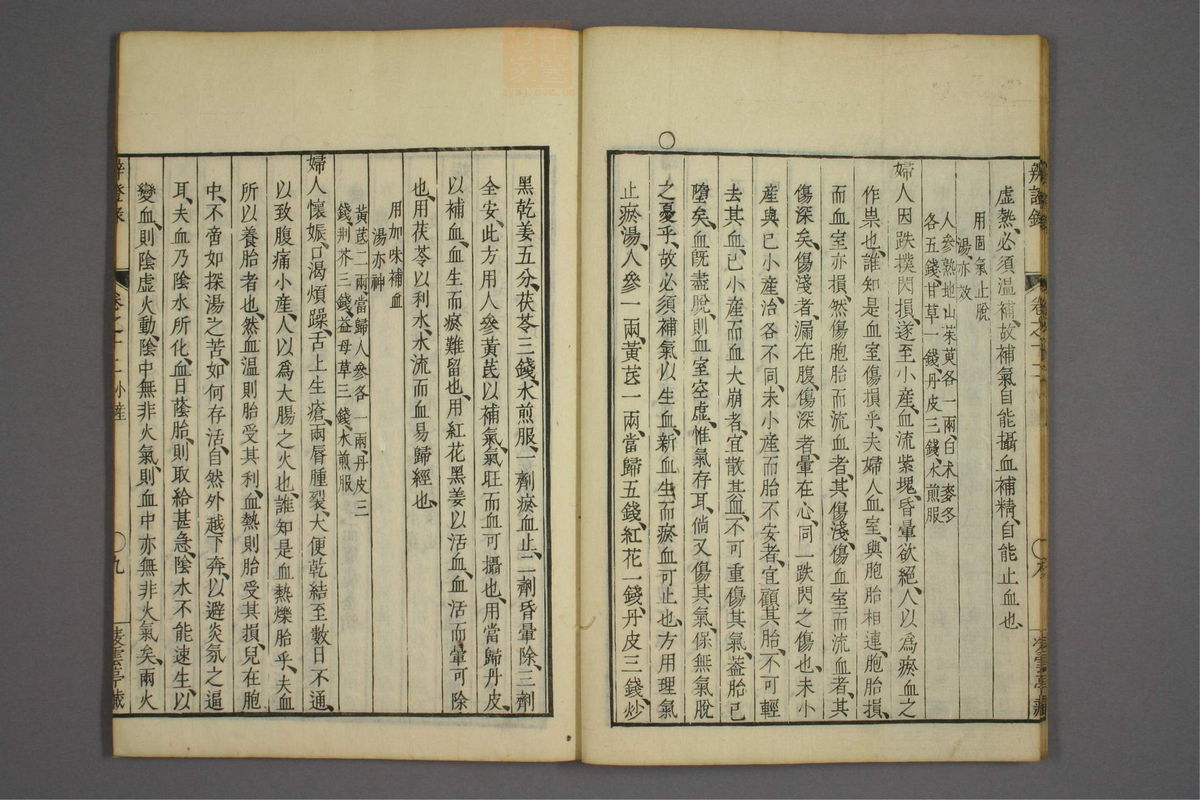 辨證錄
卷之十二
虛熱必須溫補故補氣自能攝血補精自能止血也
用固氣止脫
湯亦效
人參熟地山茱萸各一兩白朮麥冬
各五錢甘草一錢丹皮三錢水煎服
婦人因跌撲閃損遂至小產血流紫塊昏暈欲絕人以爲瘀血之
作祟也誰知是血室傷損乎夫婦人血室與胞胎相連胞胎損
而血室亦損然傷胞胎而流血者其傷淺傷血室而流血者其
傷深矣傷淺者漏在腹傷深者暈在心同一跌閃之傷也未小
產與已小產治各不同未小產而胎不安者宜顧其胎不可輕
去其血已小產而血大崩者宜散其血不可重傷其氣葢胎已
墮矣血旣盡脫則血室空虛惟氣存耳倘又傷其氣保無氣脫
○
之憂乎故必須補氣以生血新血生而瘀血可止也方用理氣
止瘀湯人參一兩黃茋一兩當歸五錢紅花一錢丹皮三錢炒
黑乾姜五分茯苓三錢水煎服一劑瘀血止二劑昏暈除三劑
全安此方用人參黃茋以補氣氣旺而血可攝也用當歸丹皮
以補血血生而瘀難留也用紅花黑姜以活血血活而暈可除
也用茯苓以利水水流而血易歸經也
用加味補血
湯亦神
黃茋二兩當歸人參各一兩丹皮三
錢荆芥三錢益母草三錢水煎服
婦人懷娠口渴煩躁舌上生瘡兩唇腫裂大便乾結至數日不通
以致腹痛小產人以爲大腸之火也誰知是血熱爍胎乎夫血
所以養胎者也然血溫則胎受其利血熱則胎受其損兒在胞
中不啻如探湯之苦如何存活自然外越下奔以避炎氛之逼
耳夫血乃陰水所化血日蔭胎則取給甚急陰水不能速生以
變血則陰虛火動陰中無非火氣則血中亦無非火氣矣兩火
卷之十二 小產
九